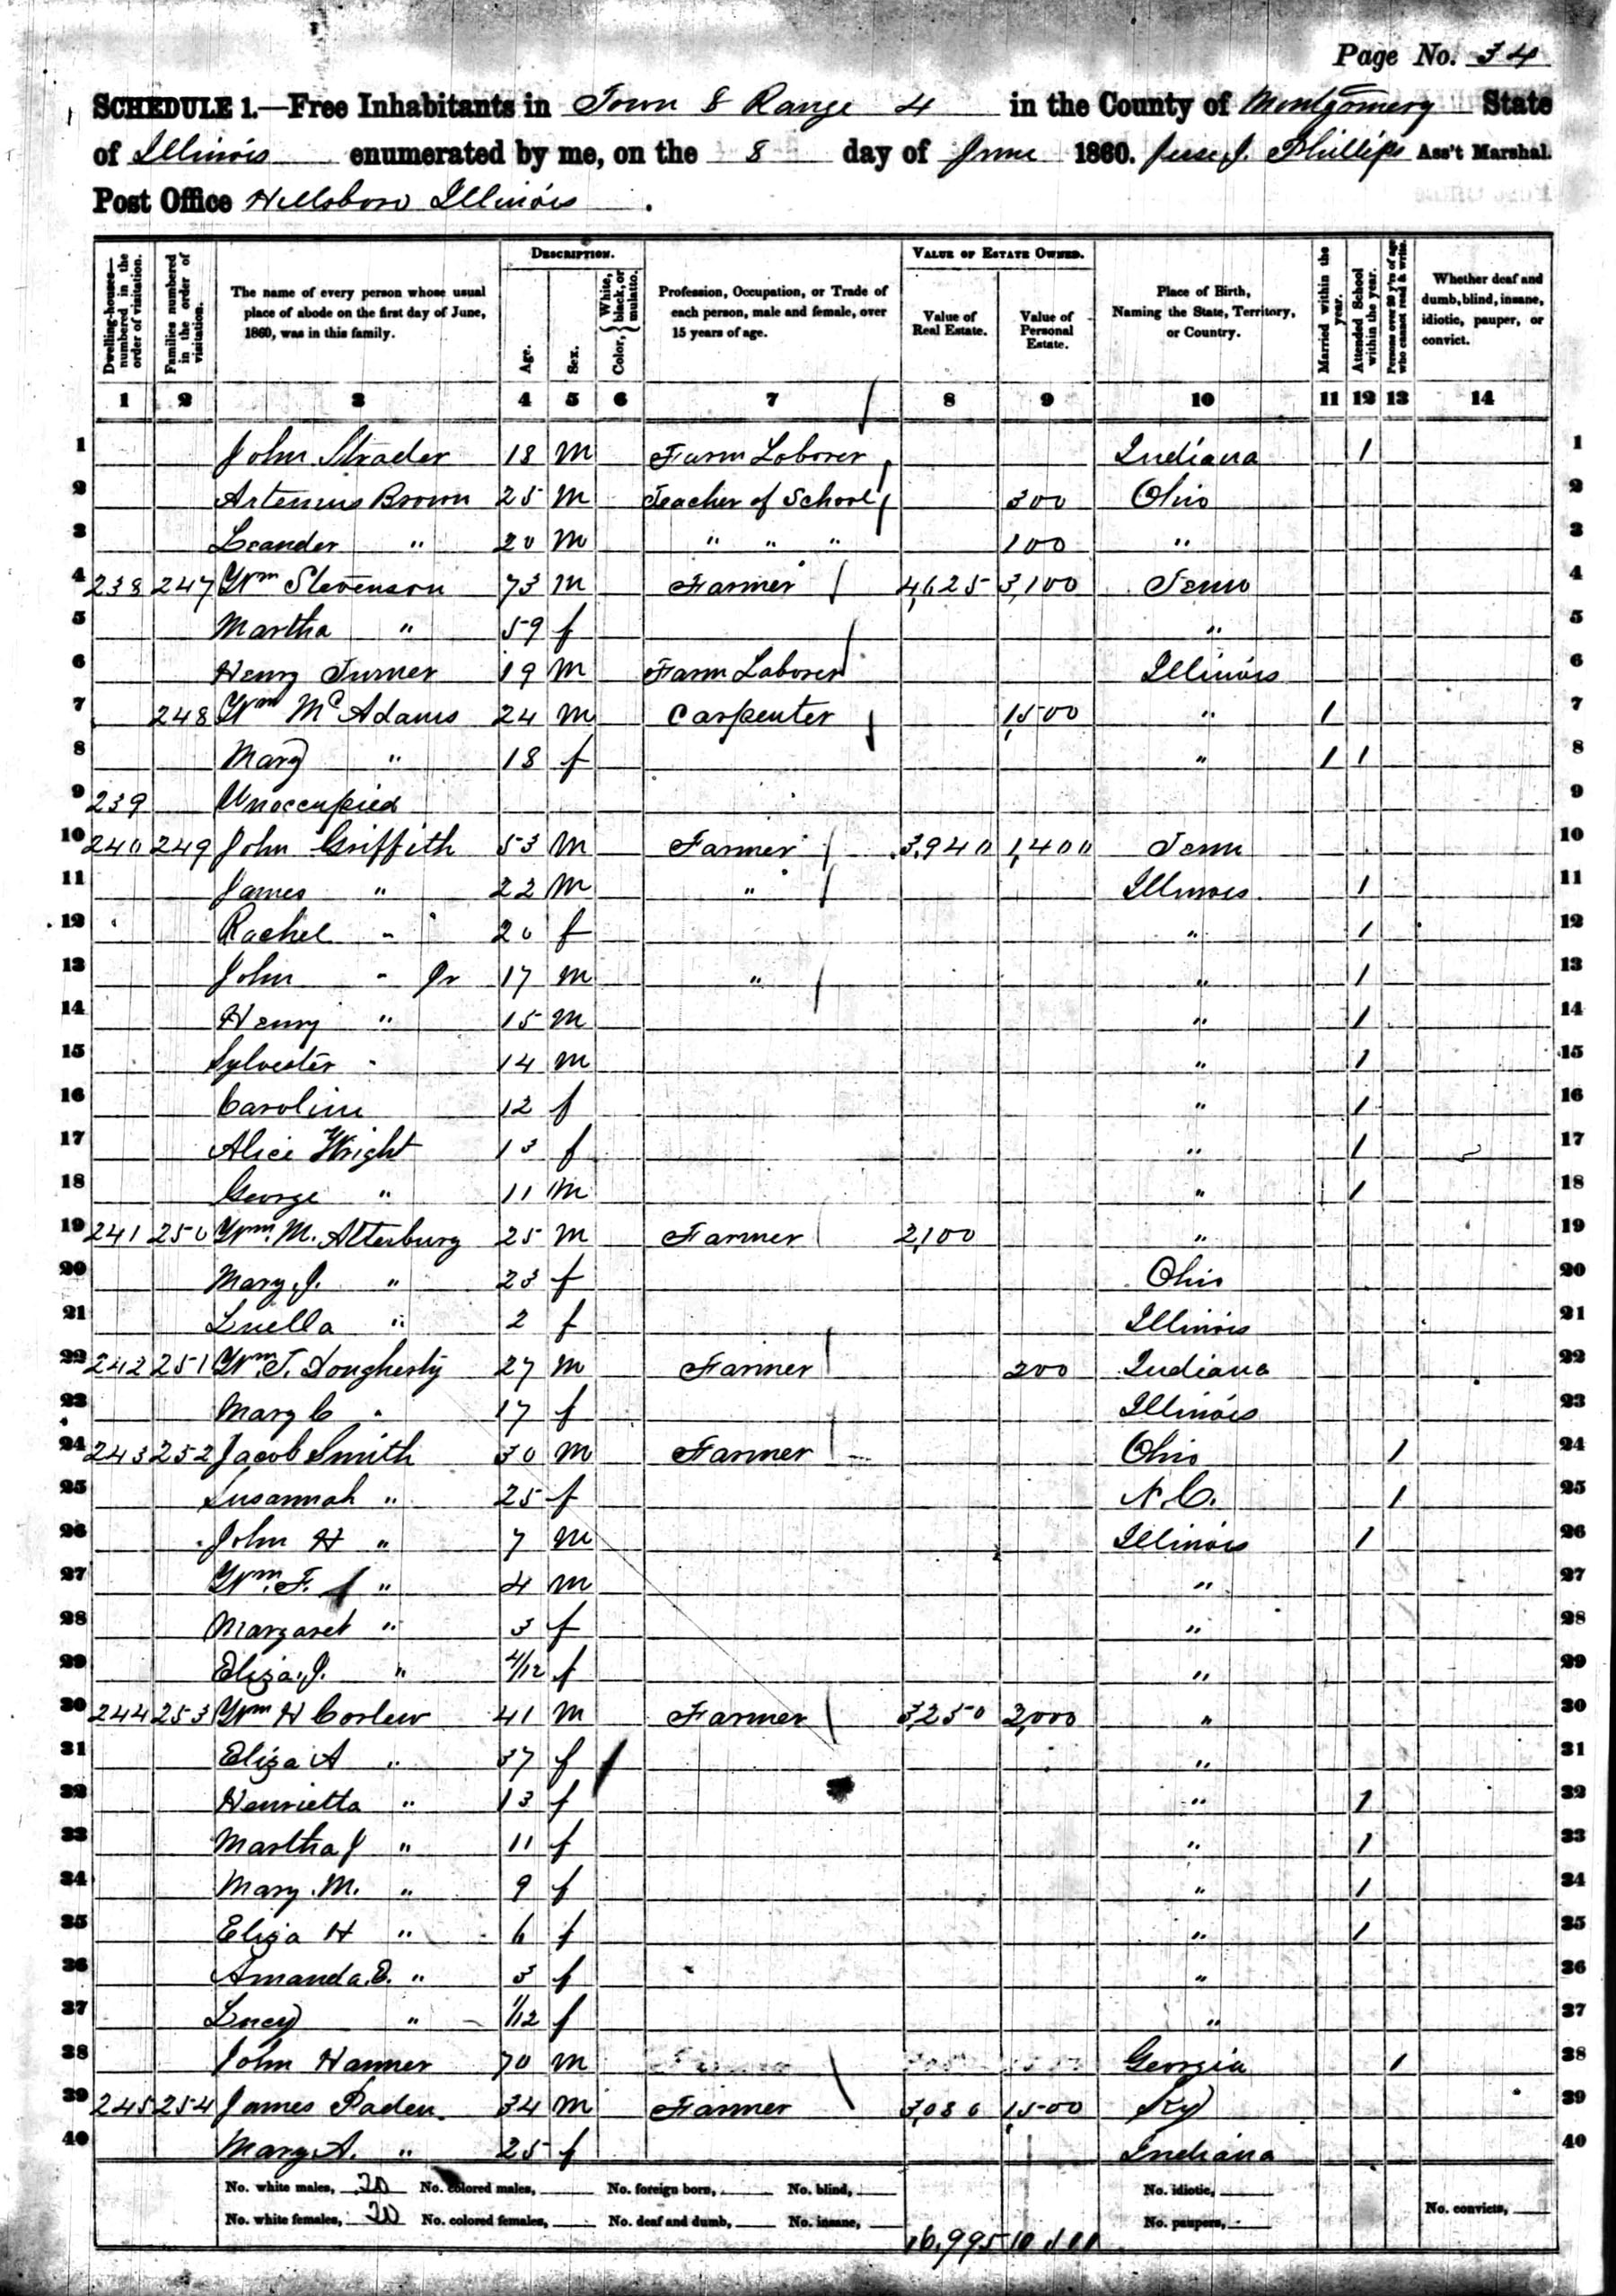 Page No. 34
SCHEDULE 1.—Free Inhabitants in Town 8 Range 4 in the County of Montgomery State
of Illinois enumerated by me, on the 8 day of June 1860. Jesse J. Phillips Ass't Marshal.
Post Office Hillsboro Illinois.
DESCRIPTION. VALUE OF ESTATE OWNED.
Dwelling-houses—numbered in the order of visitation.
Families numbered in the order of visitation.
The name of every person whose usual place of abode on the first day of June, 1860, was in this family.
Age.
Sex.
Color, { White, black, or mulatto.
Profession, Occupation, or Trade of each person, male and female, over 15 years of age.
Value of Real Estate.
Value of Personal Estate.
Place of Birth, Naming the State, Territory, or Country.
Married within the year.
Attended School within the year.
Persons over 20 y'rs of age who cannot read & write.
Whether deaf and dumb, blind, insane, idiotic, pauper, or convict.
1 2 3 4 5 6 7 8 9 10 11 12 13 14
1 John Strader 18 m Farm Laborer Indiana 1 1
2 Artemus Brown 25 m Teacher of School 300 Ohio 2
3 Leander " 20 m " " " 100 " 3
4 238 247 Wm Stevenson 73 m Farmer 4,625 3,100 Tenn 4
5 Martha " 59 f " 5
6 Henry Turner 19 m Farm Laborer Illinois 6
7 248 Wm McAdams 24 m Carpenter 1,500 " 1 7
8 Mary " 18 f " 1 1 8
9 239 Unoccupied 9
10 240 249 John Griffith 53 m Farmer 3,940 1,400 Tenn 10
11 James " 22 m " Illinois 1 11
12 Rachel " 20 f " 1 12
13 John " Jr 17 m " " 1 13
14 Henry " 15 m " 1 14
15 Sylvester " 14 m " 1 15
16 Caroline 12 f " 1 16
17 Alice Wright 13 f " 1 17
18 George " 11 m " 1 18
19 241 250 Wm. M. Atterburg 25 m Farmer 2,100 " 19
20 Mary J. " 23 f Ohio 20
21 Luella " 2 f Illinois 21
22 242 251 Wm. T. Dougherty 27 m Farmer 200 Indiana 22
23 Mary C " 17 f Illinois 23
24 243 252 Jacob Smith 30 m Farmer Ohio 1 24
25 Susannah " 25 f N.C. 1 25
26 John H " 7 m Illinois 1 26
27 Wm. F. " 4 m " 27
28 Margaret " 3 f " 28
29 Eliza J. " 4/12 f " 29
30 244 253 Wm H Corlew 41 m Farmer 3,250 2,000 " 30
31 Eliza A " 37 f " 31
32 Henrietta " 13 f " 1 32
33 Martha J " 11 f " 1 33
34 Mary M. " 9 f " 1 34
35 Eliza H " 6 f " 1 35
36 Amanda E. " 3 f " 36
37 Lucy " 1/12 f " 37
38 John Hanner 70 m Georgia 1 38
39 245 254 James Paden. 34 m Farmer 3,080 1,500 Ky 39
40 Mary A. " 25 f Indiana 40
No. white males, 20 No. colored males, No. foreign born, No. blind, No. idiotic,
No. white females, 20 No. colored females, No. deaf and dumb, No. insane, No. paupers, No. convicts,
16,995